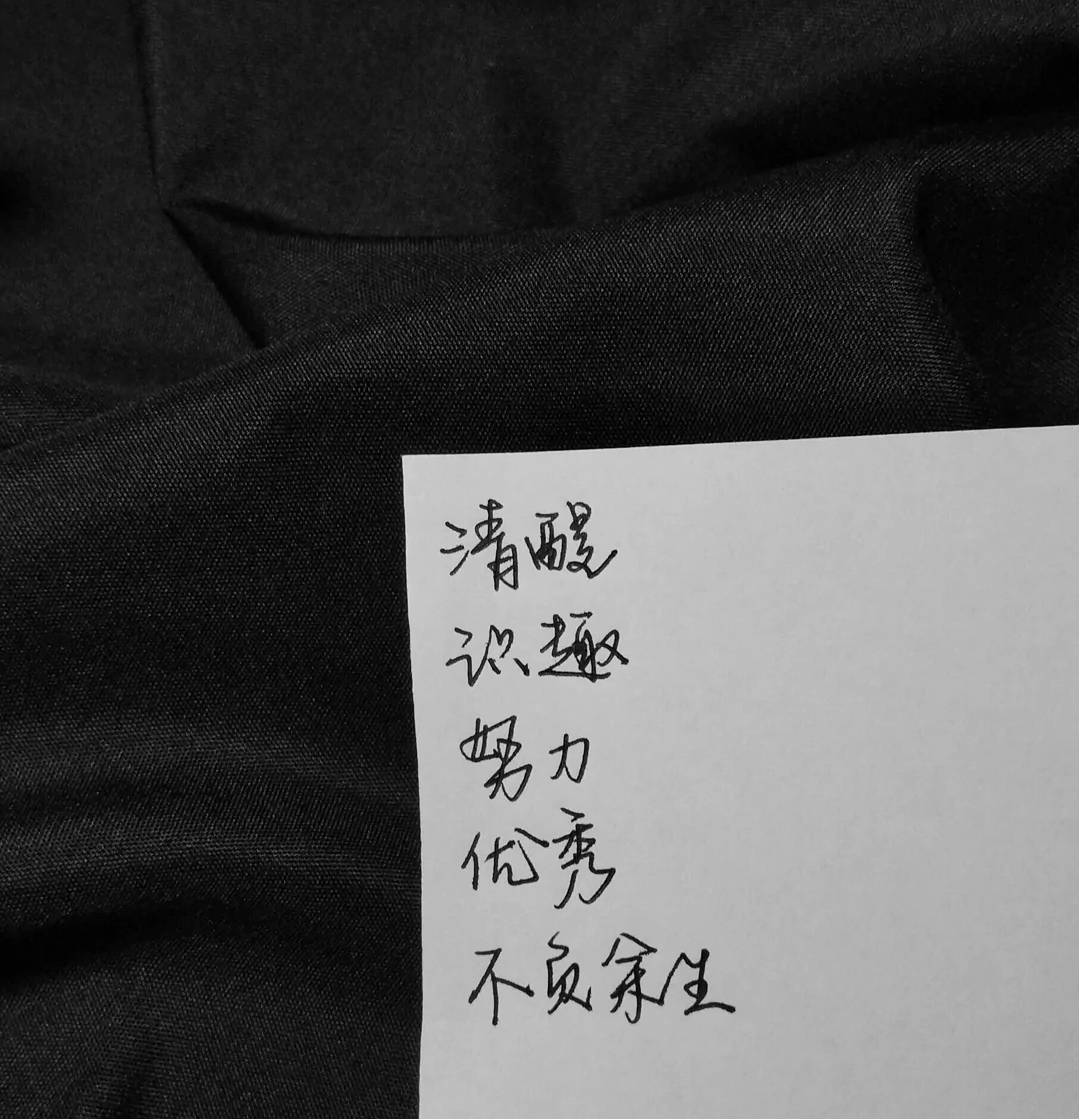 清醒
识趣
努力
优秀
不负余生